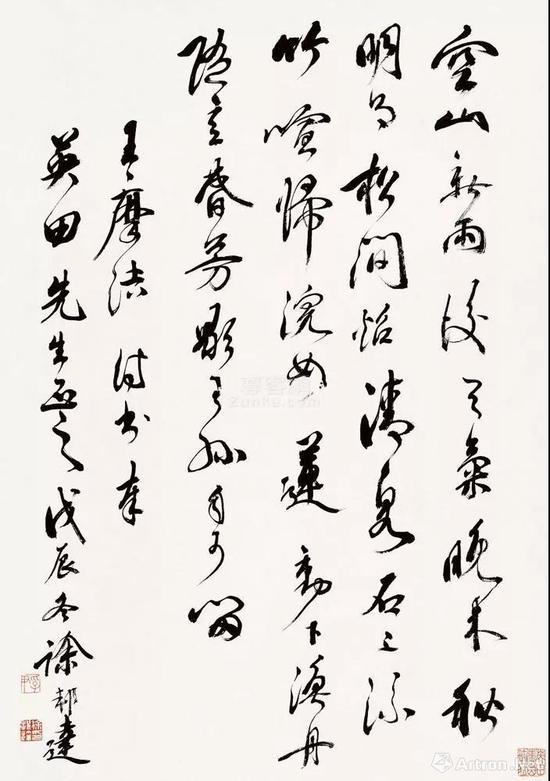 空山新雨後天氣晚来秋
明月松間照清泉石上流
竹喧歸浣女蓮動下漁舟
隨意春芳歇王孫自可留
王摩詰詩書奉
英田先生正之戊辰冬徐邦達
Artron.Net